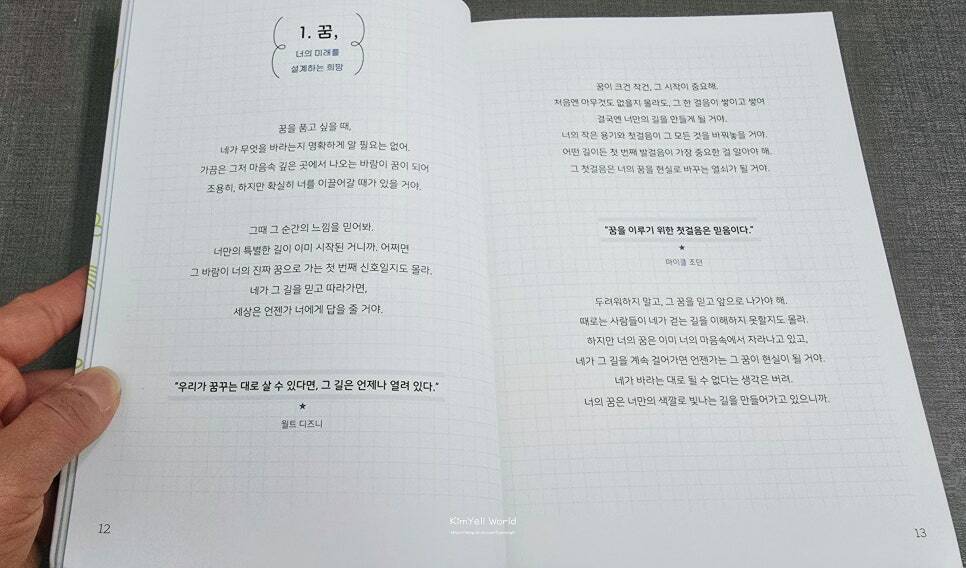 1. 꿈,
너의 미래를
설계하는 희망
꿈을 품고 싶을 때,
네가 무엇을 바라는지 명확하게 알 필요는 없어.
가끔은 그저 마음속 깊은 곳에서 나오는 바람이 꿈이 되어
조용히, 하지만 확실히 너를 이끌어갈 때가 있을 거야.
그때 그 순간의 느낌을 믿어봐.
너만의 특별한 길이 이미 시작된 거니까. 어쩌면
그 바람이 너의 진짜 꿈으로 가는 첫 번째 신호일지도 몰라.
네가 그 길을 믿고 따라가면,
세상은 언젠가 너에게 답을 줄 거야.
"우리가 꿈꾸는 대로 살 수 있다면, 그 길은 언제나 열려 있다."
★
월트 디즈니
12
꿈이 크건 작건, 그 시작이 중요해.
처음엔 아무것도 없을지 몰라도, 그 한 걸음이 쌓이고 쌓여
결국엔 너만의 길을 만들게 될 거야.
너의 작은 용기와 첫걸음이 그 모든 것을 바꿔놓을 거야.
어떤 길이든 첫 번째 발걸음이 가장 중요한 걸 알아야 해.
그 첫걸음은 너의 꿈을 현실로 바꾸는 열쇠가 될 거야.
"꿈을 이루기 위한 첫걸음은 믿음이다."
★
마이클 조던
두려워하지 말고, 그 꿈을 믿고 앞으로 나가야 해.
때로는 사람들이 네가 걷는 길을 이해하지 못할지도 몰라.
하지만 너의 꿈은 이미 너의 마음속에서 자라나고 있고,
네가 그 길을 계속 걸어가면 언젠가는 그 꿈이 현실이 될 거야.
네가 바라는 대로 될 수 없다는 생각은 버려.
너의 꿈은 너만의 색깔로 빛나는 길을 만들어가고 있으니까.
13
KimYell World